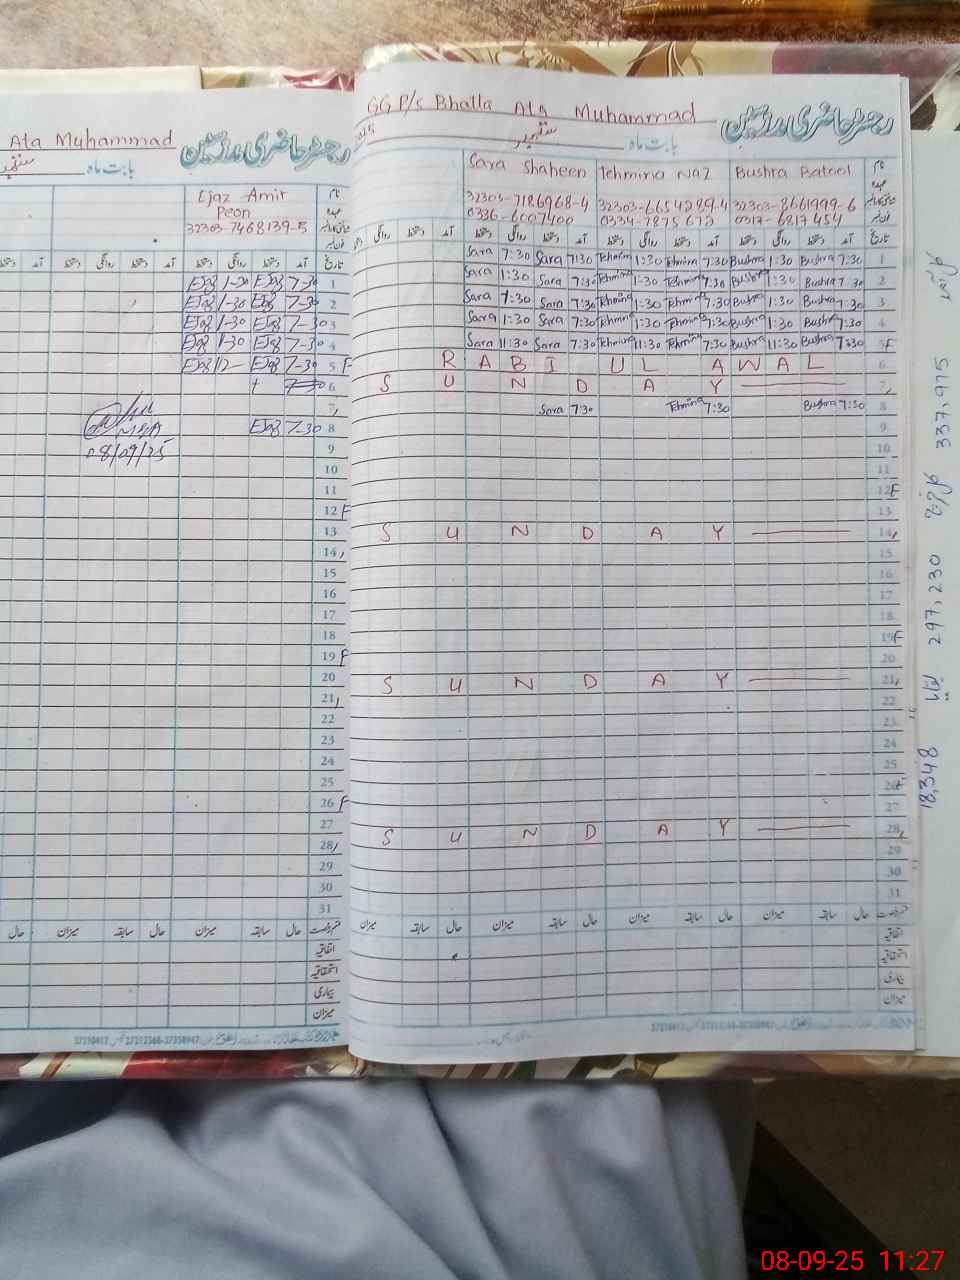 Ata Muhammad
رجسٹر حاضری مدرسین
بابت ماہ ستمبر
Ejaz Amir
Peon
32303-7468139-5
نام
عہدہ
تاریخ آمد دستخط روانگی دستخط آمد دستخط
1 7-30 Ejaz 1-30 Ejaz
2 7-30 Ejaz 1-30 Ejaz
3 7-30 Ejaz 1-30 Ejaz
4 7-30 Ejaz 1-30 Ejaz
5 F 7-30 Ejaz 12- Ejaz
6 7-30
7,
8 7-30 Ejaz
08/09/25
9
10
11
12 F
13
14,
15
16
17
18
19 F
20
21,
22
23
24
25
26 F
27
28,
29
30
31
میزان سابقہ حال میزان سابقہ حال
اتفاقیہ
استحقاقیہ
بیماری
میزان
GG P/s Bhatla Ata Muhammad
رجسٹر حاضری مدرسین
بابت ماہ ستمبر 2025
Sara Shaheen Tehmina Naz Bushra Batool
32303-7186968-4 32303-6654289-4 32303-8661999-6
0336-6007400 0334-7875672 0317-6817454
نام
عہدہ
تاریخ آمد دستخط روانگی دستخط
Sara 7:30 Sara 7:30 Tehmina 1:30 Tehmina 7:30 Bushra 1:30 Bushra 7:30 1
Sara 1:30 Sara 7:30 Tehmina 1:30 Tehmina 7:30 Bushra 1:30 Bushra 7:30 2
Sara 1:30 Sara 7:30 Tehmina 1:30 Tehmina 7:30 Bushra 1:30 Bushra 7:30 3
Sara 1:30 Sara 7:30 Tehmina 1:30 Tehmina 7:30 Bushra 1:30 Bushra 7:30 4
Sara 11:30 Sara 7:30 Tehmina 11:30 Tehmina 7:30 Bushra 11:30 Bushra 7:30 5F
R A B I U L A W A L 6
S U N D A Y 7,
Sara 7:30 Tehmina 7:30 Bushra 7:30 8
9
10
11
12F
13
S U N D A Y 14,
15
16
17
18
19F
20
S U N D A Y 21,
22
23
24
25
26F
27
S U N D A Y 28,
29
30
31
میزان سابقہ حال میزان سابقہ حال میزان سابقہ حال میزان سابقہ حال
اتفاقیہ
استحقاقیہ
بیماری
میزان
337,975
297,230
18,348 بقایا
08-09-25 11:27